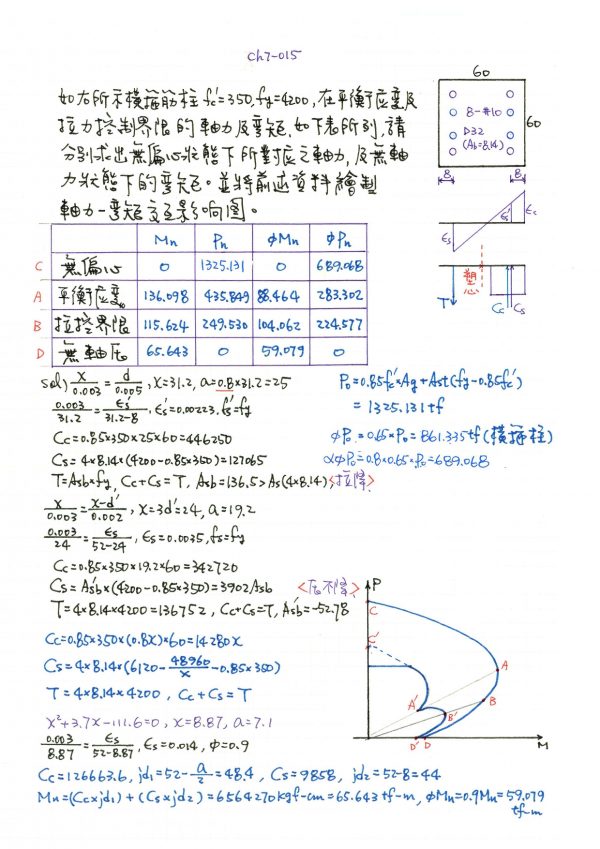 Ch7-015
如右所示橫箍筋柱 fc'=350, fy=4200, 在平衡應變及
拉力控制界限的軸力及彎矩, 如下表所列, 請
分別求出無偏心狀態下所對應之軸力, 及無軸
力狀態下的彎矩。並將前述資料繪製
軸力-彎矩交互影响圖。
60
8-#10
D32
(Ab=8.14)
60
8
8
εs
εs'
εc
塑心
T
Cc
Cs
Mn Pn φMn φPn
C 無偏心 0 1325.131 0 689.068
A 平衡應變 136.098 435.849 88.464 283.302
B 拉控界限 115.624 249.530 104.062 224.577
D 無軸压 65.643 0 59.079 0
sol) x/0.003 = d/0.005, x=31.2, a=0.8×31.2=25
0.003/31.2 = εs'/31.2-8, εs'=0.00223, fs'=fy
Cc=0.85×350×25×60=446250
Cs=4×8.14×(4200-0.85×350)=127065
T=Asb×fy, Cc+Cs=T, Asb=136.5>As(4×8.14), <拉降>
Po=0.85fc'×Ag+Ast(fy-0.85fc')
=1325.131tf
φPo=0.65×Po=861.335tf(橫箍柱)
αφPo=0.8×0.65×Po=689.068
x/0.003 = x-d'/0.002, x=3d'=24, a=19.2
0.003/24 = εs/52-24, εs=0.0035, fs=fy
Cc=0.85×350×19.2×60=342720
Cs=Asb'×(4200-0.85×350)=3902Asb
T=4×8.14×4200=136752, Cc+Cs=T, Asb'=-52.78
<压不降>
Cc=0.85×350×(0.8x)×60=14280x
Cs=4×8.14×(6120-48960/x-0.85×350)
T=4×8.14×4200, Cc+Cs=T
x²+3.7x-111.6=0, x=8.87, a=7.1
0.003/8.87 = εs/52-8.87, εs=0.014, φ=0.9
P
C
C'
A
A'
B
B'
D' D
M
Cc=126663.6, jd1=52-a/2=48.4, Cs=9858, jd2=52-8=44
Mn=(Cc×jd1)+(Cs×jd2)=6564270kgf-cm=65.643tf-m, φMn=0.9Mn=59.079
tf-m